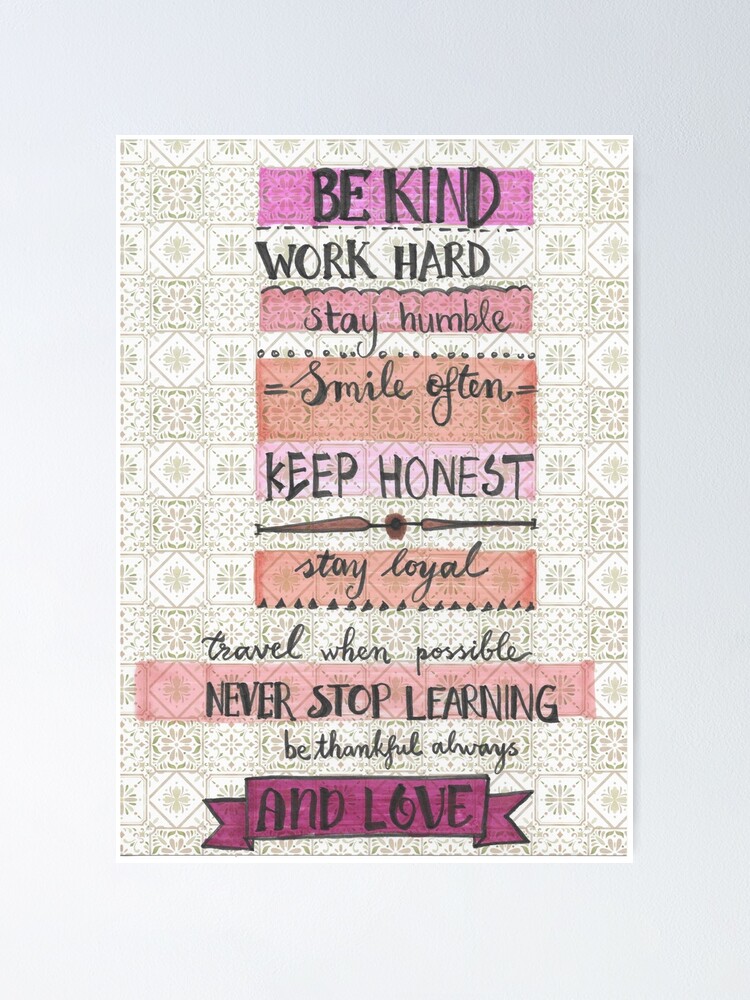 BE KIND
WORK HARD
stay humble
=Smile often=
KEEP HONEST
stay loyal
travel when possible
NEVER STOP LEARNING
be thankful always
AND LOVE